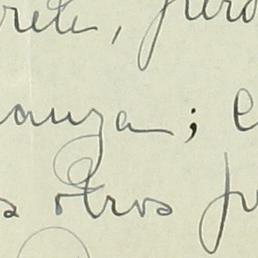 rete, pero
anza; e
s otros p